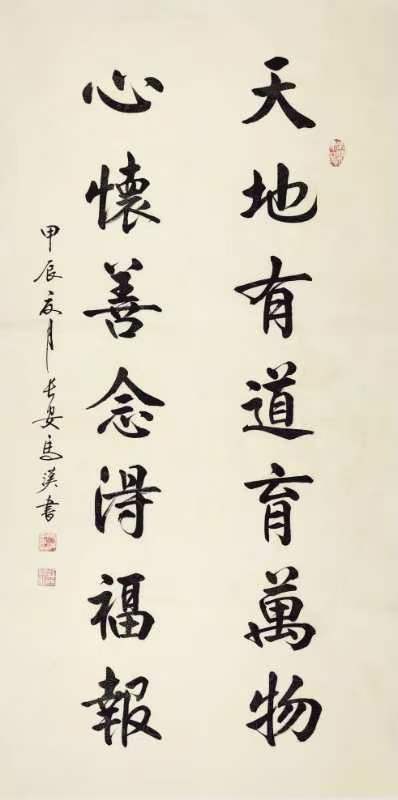 天地有道育萬物
心懷善念得福報
甲辰夏月長安馬漢書